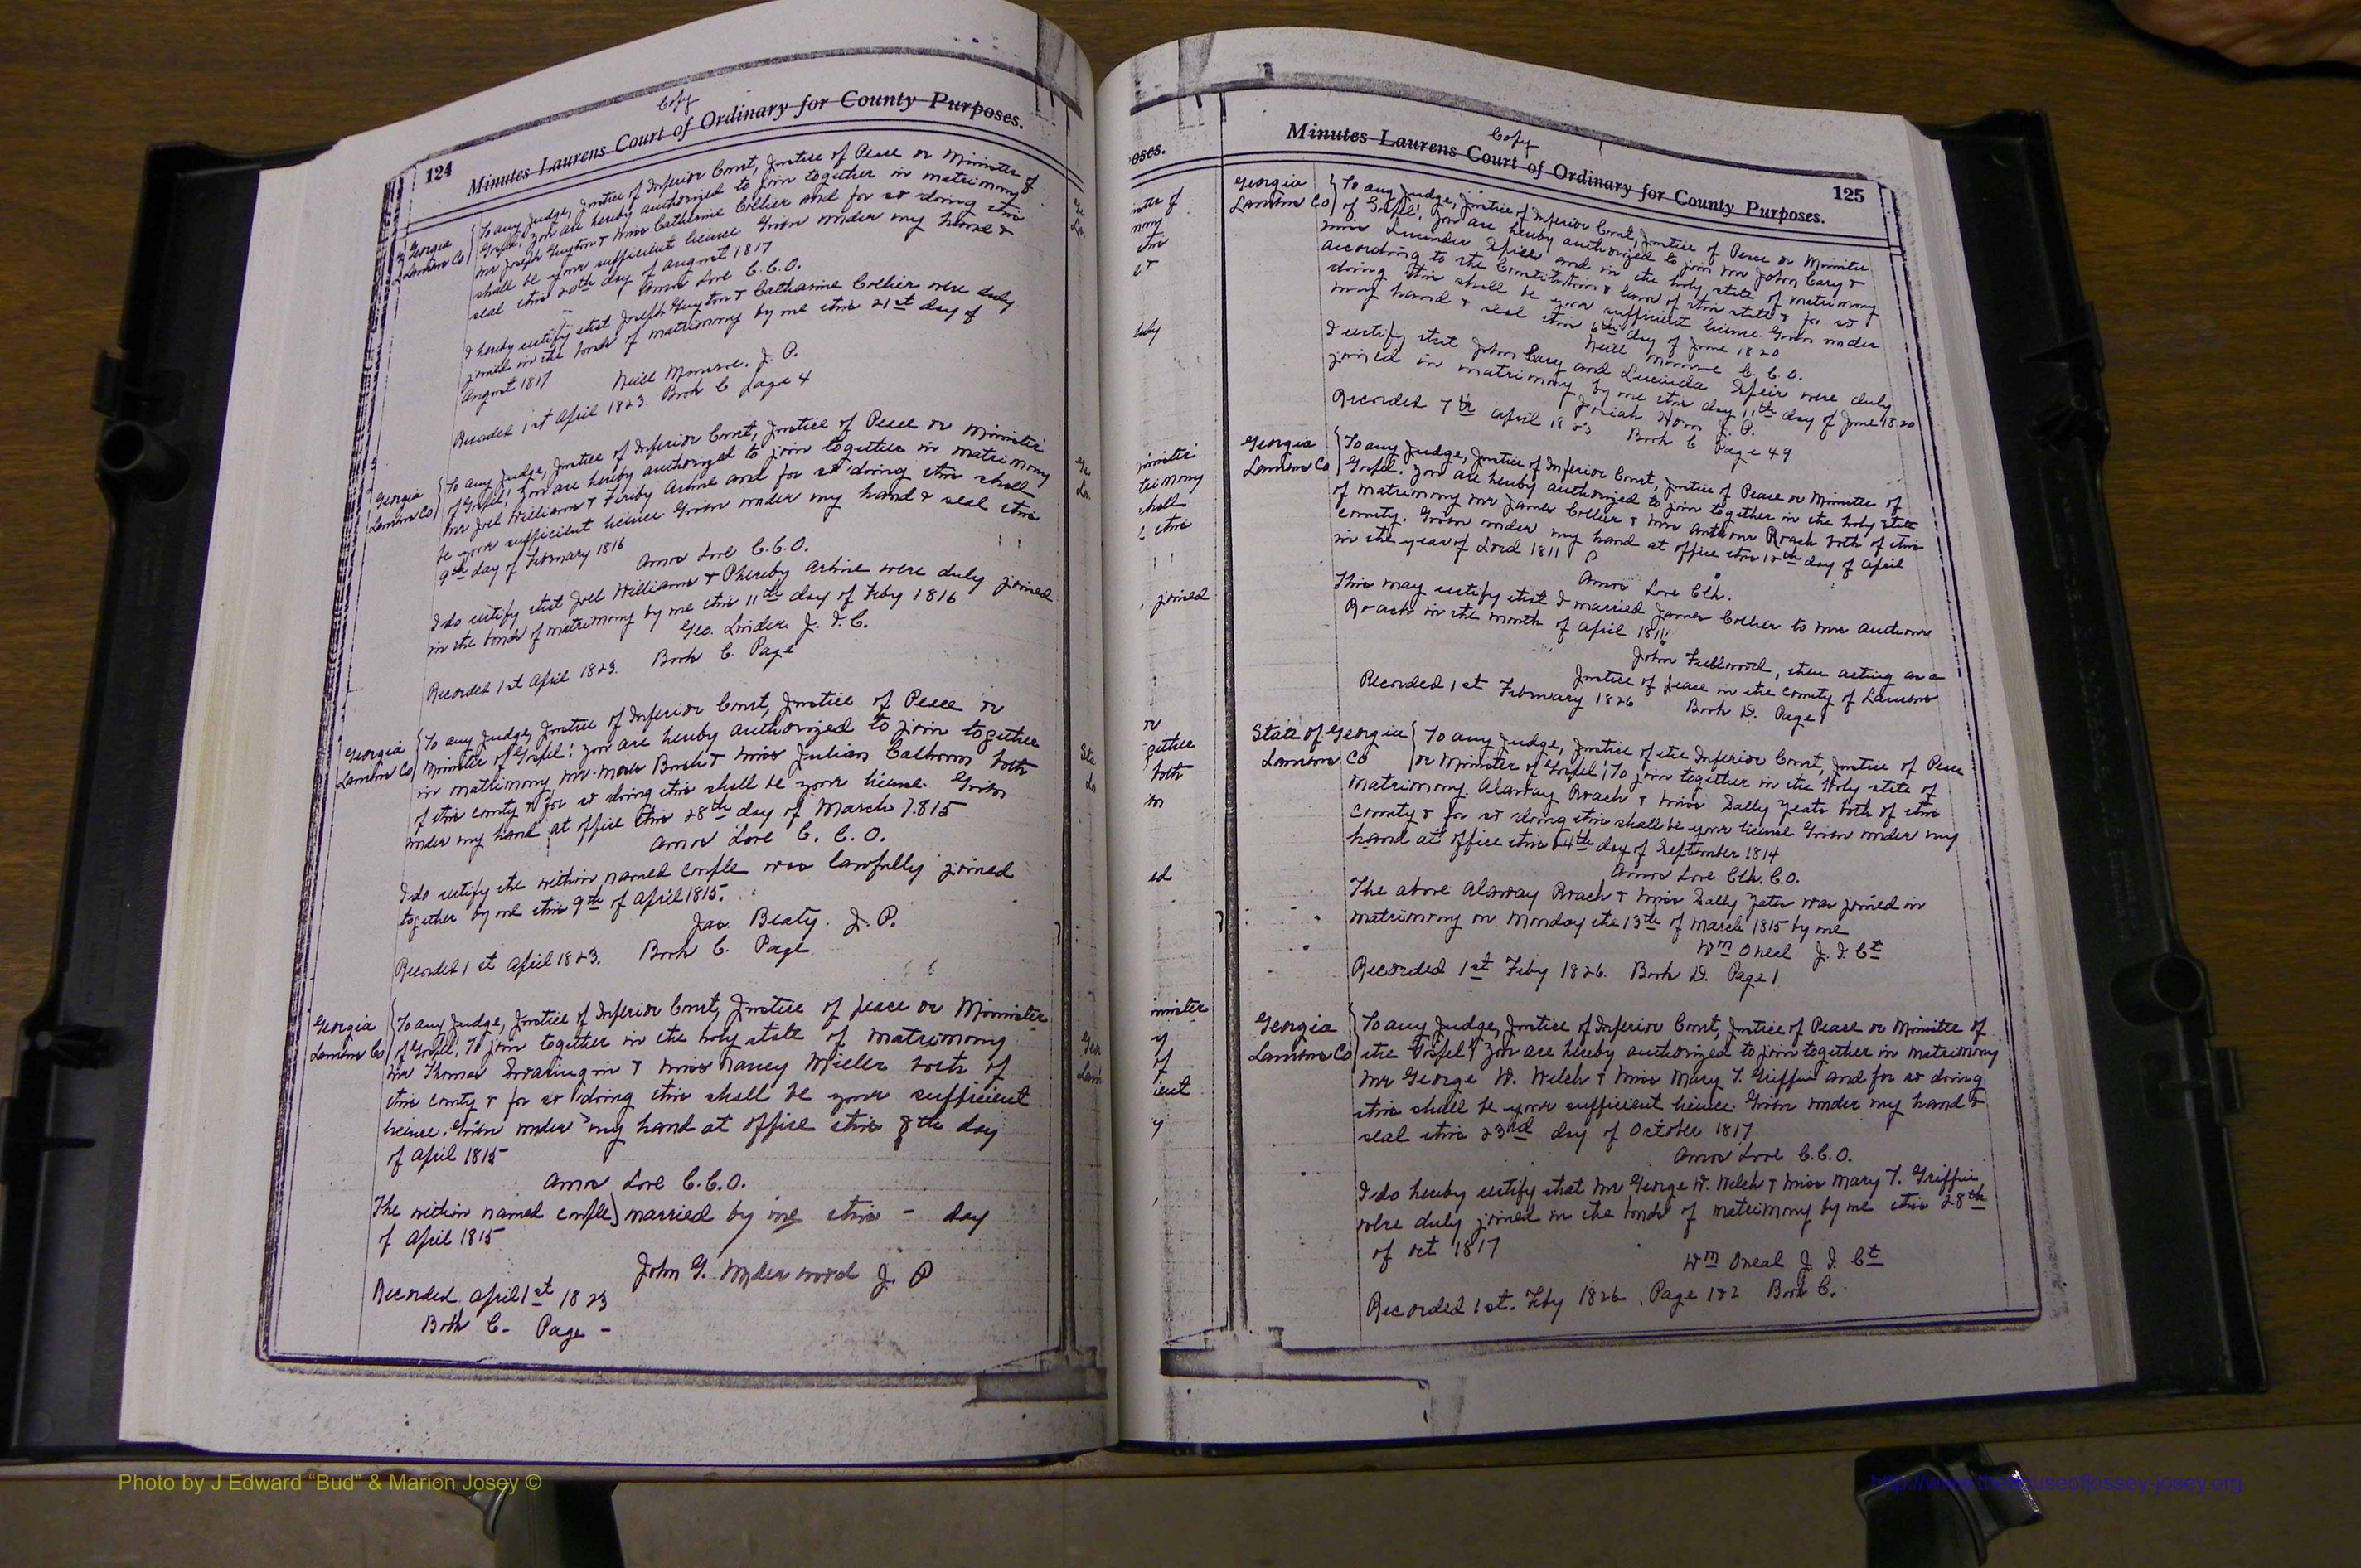 Copy
124 Minutes Laurens Court of Ordinary for County Purposes.
Georgia
Laurens Co
To any Judge, Justice of Inferior Court, Justice of Peace or Minister of
Gospel! You are hereby authorized to join together in matrimony
Mr Joseph Guyton & Miss Catharine Collier and for so doing this
shall be your sufficient license Given under my hand &
seal this 20th day of August 1817
Amos Love C.C.O.
I hereby certify that Joseph Guyton & Catharine Collier were duly
joined in the bonds of matrimony by me this 21st day of
August 1817
Neill Monroe. J. P.
Recorded 1st April 1823. Book C Page 4
Georgia
Laurens Co
To any Judge, Justice of Inferior Court, Justice of Peace or Minister
of Gospel! You are hereby authorized to join together in matrimony
Mr Joel Williams & Fereby Arline and for so doing this shall
be your sufficient license. Given under my hand & seal this
9th day of February 1816
Amos Love C.C.O.
I do certify that Joel Williams & Phereby Arline were duly joined
in the bonds of matrimony by me this 11th day of Feby 1816
Geo. Linder. J. I. C.
Recorded 1st April 1823. Book C. Page
Georgia
Laurens Co
To any Judge, Justice of Inferior Court, Justice of Peace or
Minister of Gospel! You are hereby authorized to join together
in matrimony Mr. Bush & Miss Julian Calhoun both
of this county & for so doing this shall be your license. Given
under my hand at office this 28th day of March 1815
Amos Love C. C. O.
I do certify the within named couple was lawfully joined
together by me this 9th of April 1815.
Jas. Beaty. J. P.
Recorded 1st April 1823. Book C. Page
Georgia
Laurens Co
To any Judge, Justice of Inferior Court, Justice of peace or Minister
of Gospel! To join together in the holy state of matrimony
Mr Thomas & Miss Nancy both of
this county & for so doing this shall be your sufficient
license. Given under my hand at office this 8th day
of April 1815
Amos Love C.C.O.
The within named couple married by me this - day
of April 1815
John G. Underwood J. P
Recorded April 1st 1823
Book C- Page -
Copy
Minutes Laurens Court of Ordinary for County Purposes. 125
Georgia
Laurens Co
To any Judge, Justice of Inferior Court, Justice of Peace or Minister
of Gospel! You are hereby authorized to join Mr John Cary &
Miss Lucinda and in the holy state of matrimony
according to the Constitution & laws of this state & for so
doing this shall be your sufficient license. Given under
my hand & seal this 6th day of June 1820
Neill Monroe C. C. O.
I certify that John Cary and Lucinda Speir were duly
joined in matrimony by me this day 11th day of June 1820
Josiah Horn J. P.
Recorded 7th April 1823 Book C Page 49
Georgia
Laurens Co
To any Judge, Justice of Inferior Court, Justice of Peace or Minister of
Gospel. You are hereby authorized to join together in the holy state
of matrimony Mr James Collier & Miss Roach both of this
county. Given under my hand at office this day of April
in the year of Lord 1811
Amos Love Clk.
This may certify that I married James Collier to Miss
Roach in the month of April 1811
John Fullwood, then acting as a
Justice of peace in the county of Laurens
Recorded 1st February 1826 Book D. Page 1
State of Georgia
Laurens Co
To any Judge, Justice of the Inferior Court, Justice of Peace
or Minister of Gospel! To join together in the Holy state of
Matrimony. Alaway Roach & Miss Sally Yeats both of this
county & for so doing this shall be your license Given under my
hand at office this 14th day of September 1814
Amos Love Clk. C.O.
The above Alaway Roach & Miss Sally Yates was joined in
matrimony on Monday the 13th of March 1815 by me
Wm Oneal J. I. Ct
Recorded 1st Feby 1826. Book D. Page 1
Georgia
Laurens Co
To any Judge, Justice of Inferior Court, Justice of Peace or Minister of
the Gospel! You are hereby authorized to join together in matrimony
Mr George W. Welch & Miss Mary T. Griffin and for so doing
this shall be your sufficient license. Given under my hand &
seal this 23rd day of October 1817
Amos Love C.C.O.
I do hereby certify that Mr George W. Welch & Miss Mary T. Griffin
were duly joined in the bonds of matrimony by me this 28th
of Oct 1817
Wm Oneal J. I. Ct
Recorded 1st. Feby 1826. Page 182 Book C.
Photo by J Edward “Bud” & Marion Josey ©
http://www.thehouseofjossey-josey.org